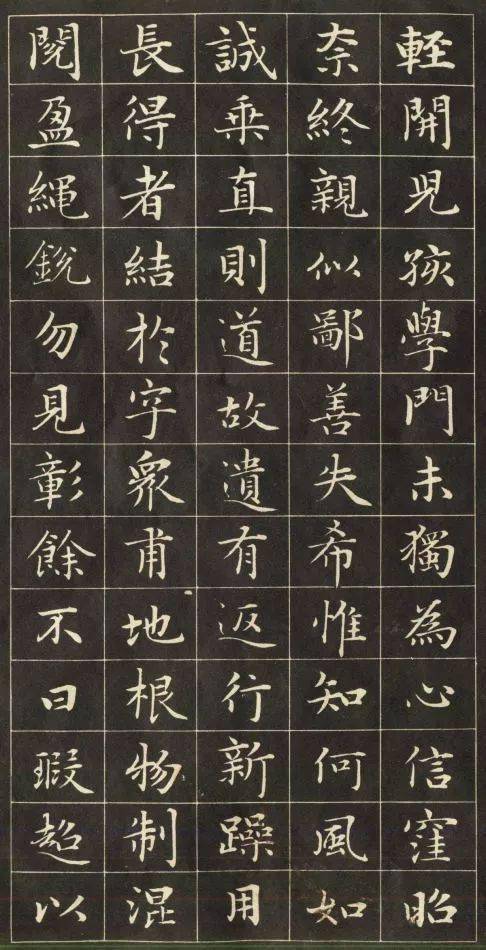 輊開兒孩學門未獨為心信窪昭
奈終親似鄙善失希惟知何風如
誠乘直則道故遺有返行新躁用
長得者結於字眾甫地根物制混
閱盈繩銳勿見彰餘不曰瑕超以